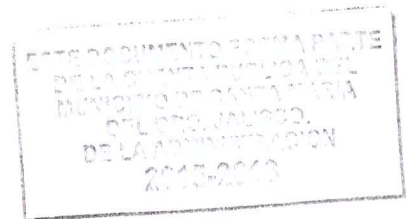 ESTE DOCUMENTO FORMA PARTE
DE LA CUENTA PUBLICA DEL
MUNICIPIO DE SANTA MARIA
DEL ORO, JALISCO.
DE LA ADMINISTRACION